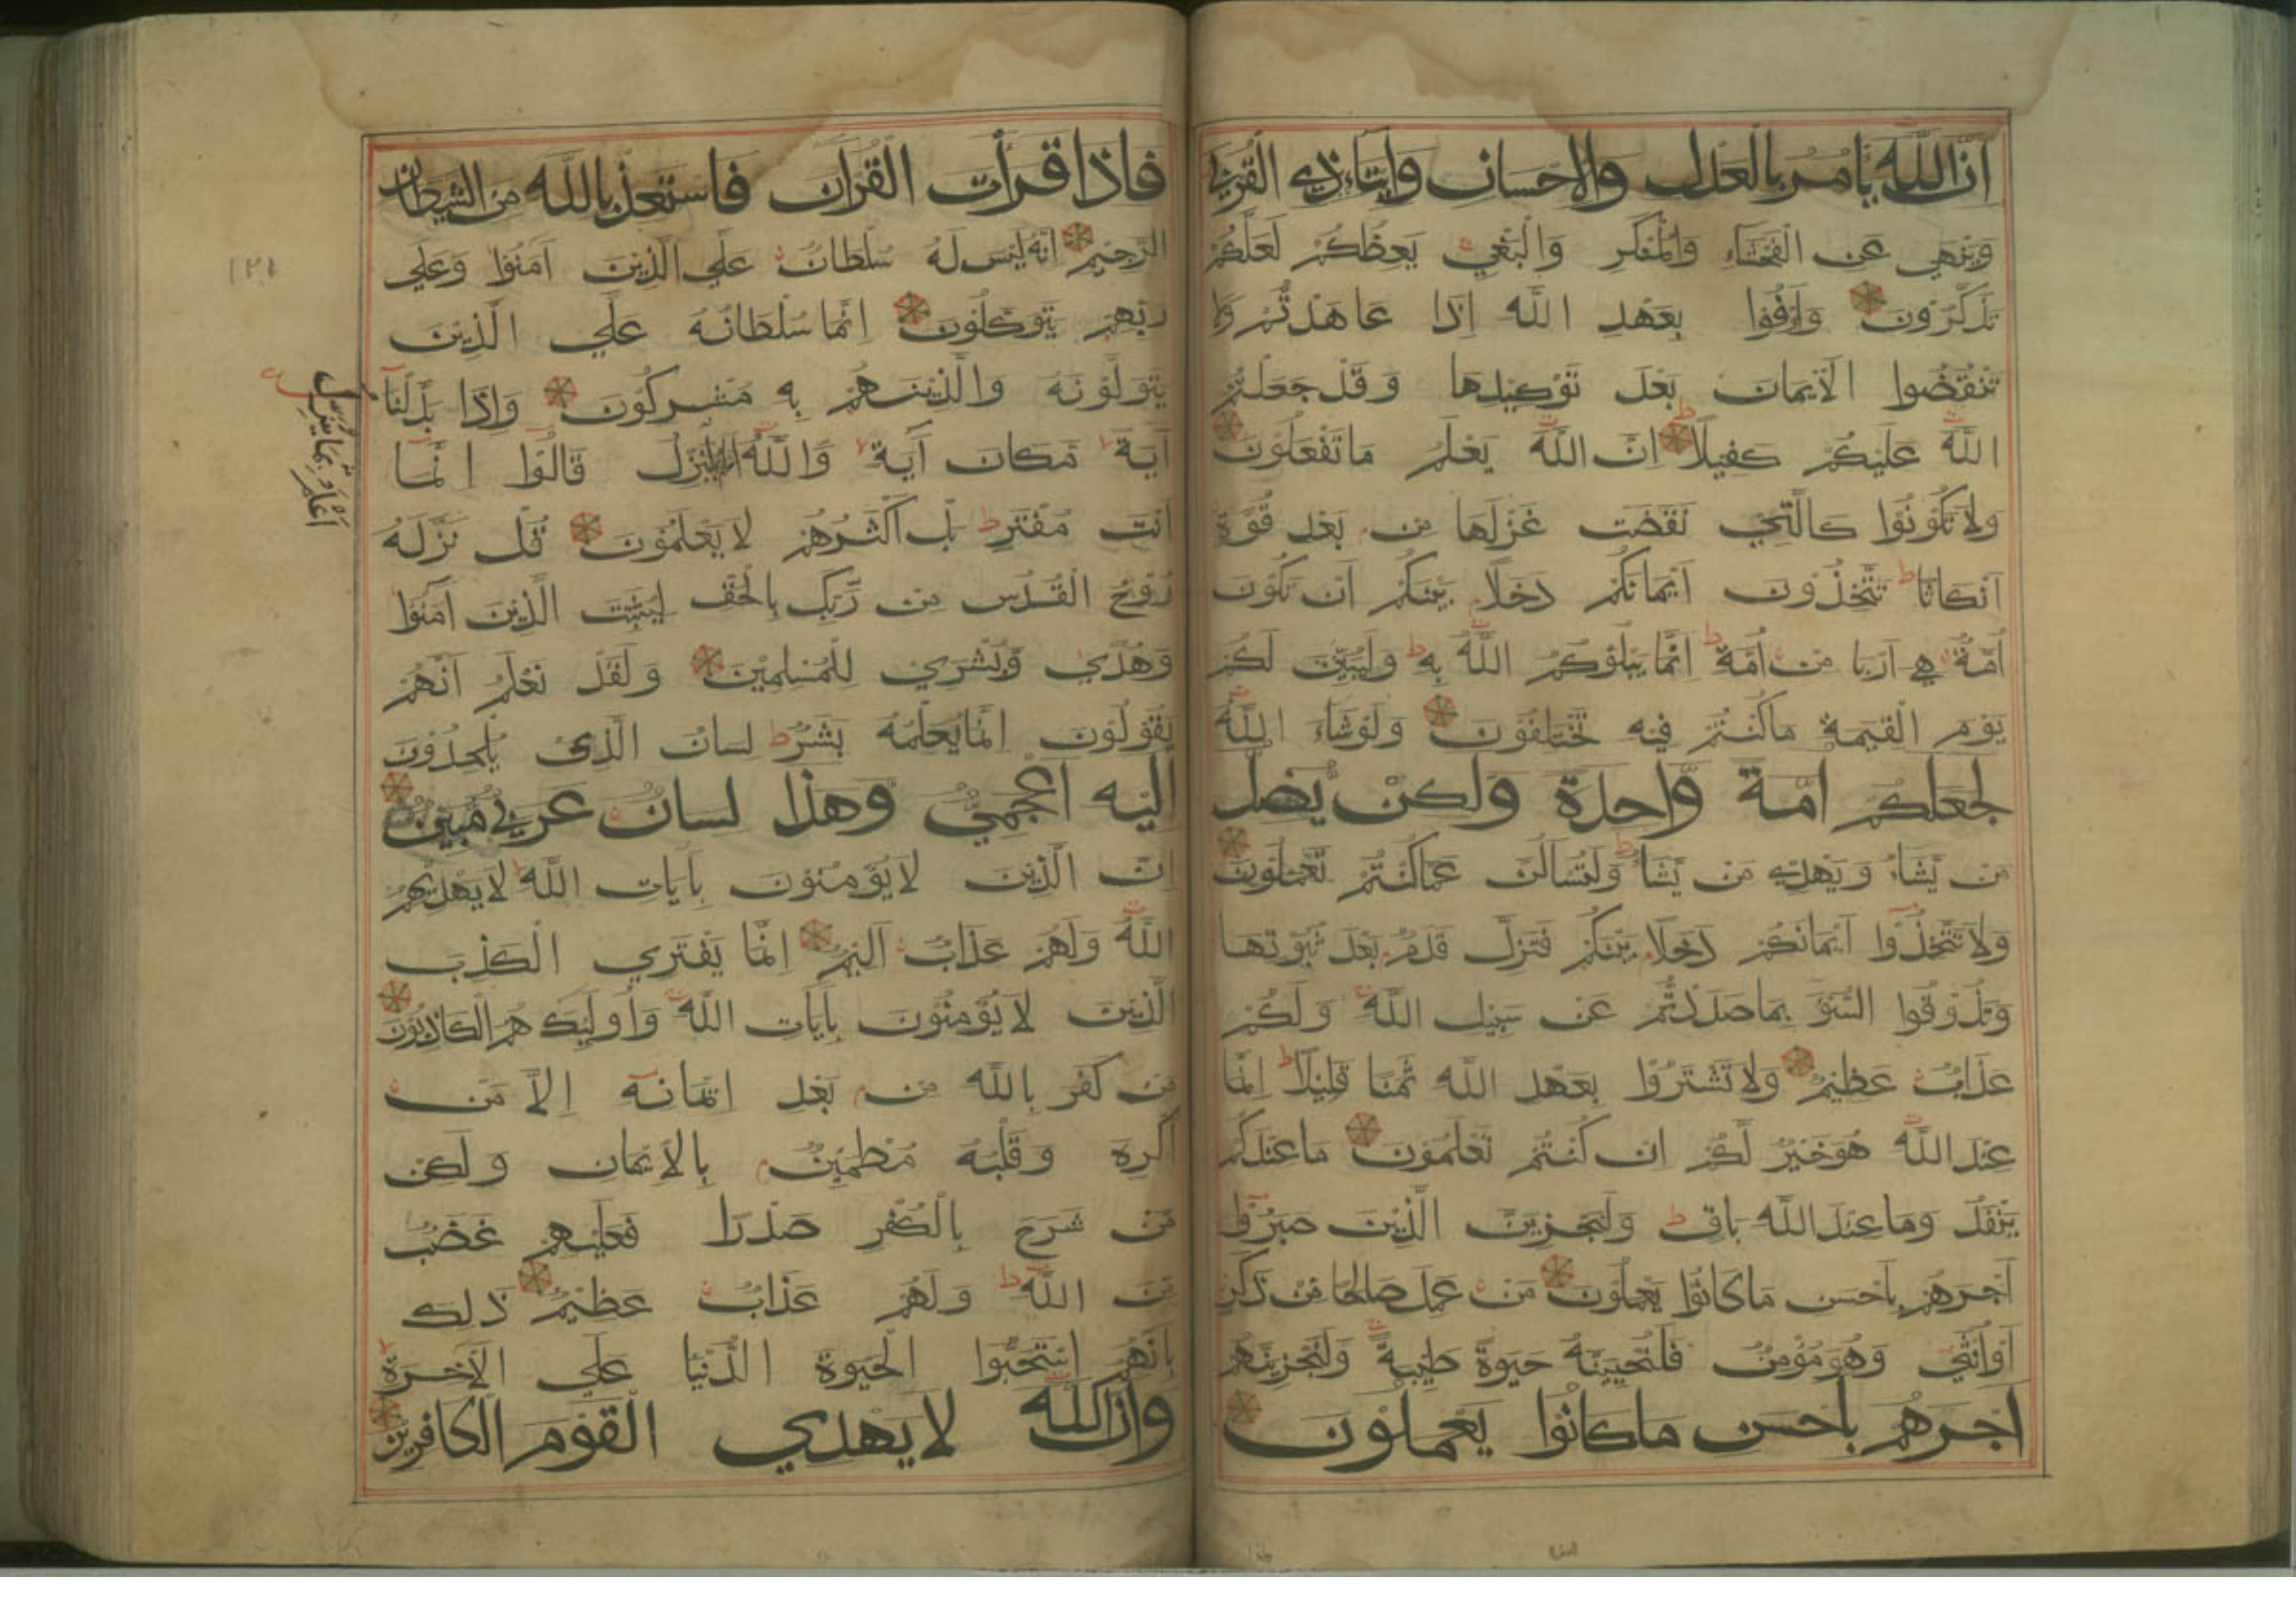 ان الله يامر بالعدل والاحسان وايتاء ذي القربى
وينهى عن الفحشاء والمنكر والبغي يعظكم لعلكم
تذكرون واوفوا بعهد الله اذا عاهدتم ولا
تنقضوا الايمان بعد توكيدها وقد جعلتم
الله عليكم كفيلا ان الله يعلم ما تفعلون
ولا تكونوا كالتي نقضت غزلها من بعد قوة
انكاثا تتخذون ايمانكم دخلا بينكم ان تكون
امة هي اربا من امة انما يبلوكم الله به وليبين لكم
يوم القيمة ما كنتم فيه تختلفون ولو شاء الله
لجعلكم امة واحدة ولكن يضل
من يشاء ويهدي من يشاء ولتسالن عما كنتم تعملون
ولا تتخذوا ايمانكم دخلا بينكم فتزل قدم بعد ثبوتها
وتذوقوا السوء بما صددتم عن سبيل الله ولكم
عذاب عظيم ولا تشتروا بعهد الله ثمنا قليلا انما
عند الله هو خير لكم ان كنتم تعلمون ما عندكم
ينفد وما عند الله باق ولنجزين الذين صبروا
اجرهم باحسن ما كانوا يعملون من عمل صالحا من ذكر
او انثى وهو مؤمن فلنحيينه حيوة طيبة ولنجزينهم
اجرهم باحسن ما كانوا يعملون
فاذا قرات القران فاستعذ بالله من الشيطان
الرجيم انه ليس له سلطان على الذين امنوا وعلى
ربهم يتوكلون انما سلطانه على الذين
يتولونه والذين هم به مشركون واذا بدلنا
اية مكان اية والله ينزل قالوا انما
انت مفتر بل اكثرهم لا يعلمون قل نزله
روح القدس من ربك بالحق ليثبت الذين امنوا
وهدى وبشرى للمسلمين ولقد نعلم انهم
يقولون انما يعلمه بشر لسان الذي يلحدون
اليه اعجمي وهذا لسان عربي مبين
ان الذين لا يؤمنون بايات الله لا يهديهم
الله ولهم عذاب اليم انما يفتري الكذب
الذين لا يؤمنون بايات الله واولئك هم الكاذبون
من كفر بالله من بعد ايمانه الا من
اكره وقلبه مطمئن بالايمان ولكن
من شرح بالكفر صدرا فعليهم غضب
من الله ولهم عذاب عظيم ذلك
بانهم استحبوا الحيوة الدنيا على الاخرة
وان الله لا يهدي القوم الكافرين
اعلم بما ينزل